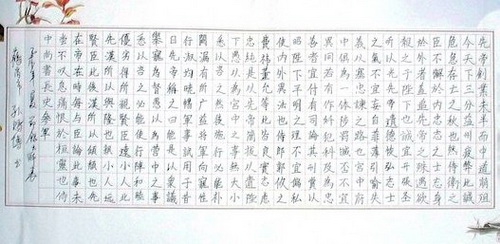 先帝創業未半而中道崩殂
今天下三分益州疲弊此誠
危急存亡之秋也然侍衛之
臣不懈於內忠志之士忘身
於外者蓋追先帝之殊遇欲
報之于陛下也誠宜開張圣
听以光先帝遺德恢弘志士
之氣不宜妄自菲薄引喻失
義以塞忠諫之路也宮中府
中俱為一体陟罰臧否不宜
異同若有作奸犯科及為忠
善者宜付有司論其刑賞以
昭陛下平明之治不宜偏私
使內外異法也侍郎郭攸之
費禕董允等此皆良實志慮
忠純是以先帝簡拔以遺陛
下愚以為宮中之事無大小
悉以咨之然后施行必能补
闕漏有所广益將軍向寵性
行淑均曉暢軍事試用于昔
日先帝稱之曰能是以眾議
舉寵為督愚以為營中之事
悉以咨之必能使行陣和睦
優劣得所親賢臣遠小人此
先漢所以興隆也親小人遠
賢臣此後漢所以傾頹也先
帝在時與臣論此事未
嘗不嘆息痛恨於桓靈也侍
中尚書長史參軍